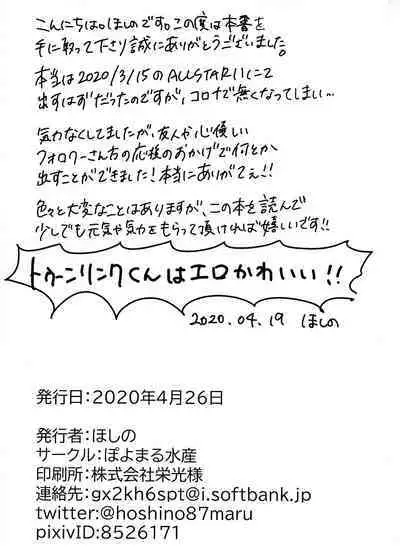 こんにちは。ほしのです。この度は本書を
手に取って下さり誠にありがとうございました。
本当は2020/3/15のALLSTAR11にて
出すはずだったのですが、コロナで無くなってしまい…
気力なくしてましたが、友人や心優しい
フォロワーさん方の応援のおかげで何とか
出すことができました!本当にありがてぇ!!
色々と大変なことはありますが、この本を読んで
少しでも元気や気力をもらって頂ければ嬉しいです!!
トゥーンリンクくんはエロかわいい!!
2020.04.19 ほしの
発行日:2020年4月26日
発行者:ほしの
サークル:ぽよまる水産
印刷所:株式会社栄光様
連絡先:gx2kh6spt@i.softbank.jp
twitter:@hoshino87maru
pixivID:8526171